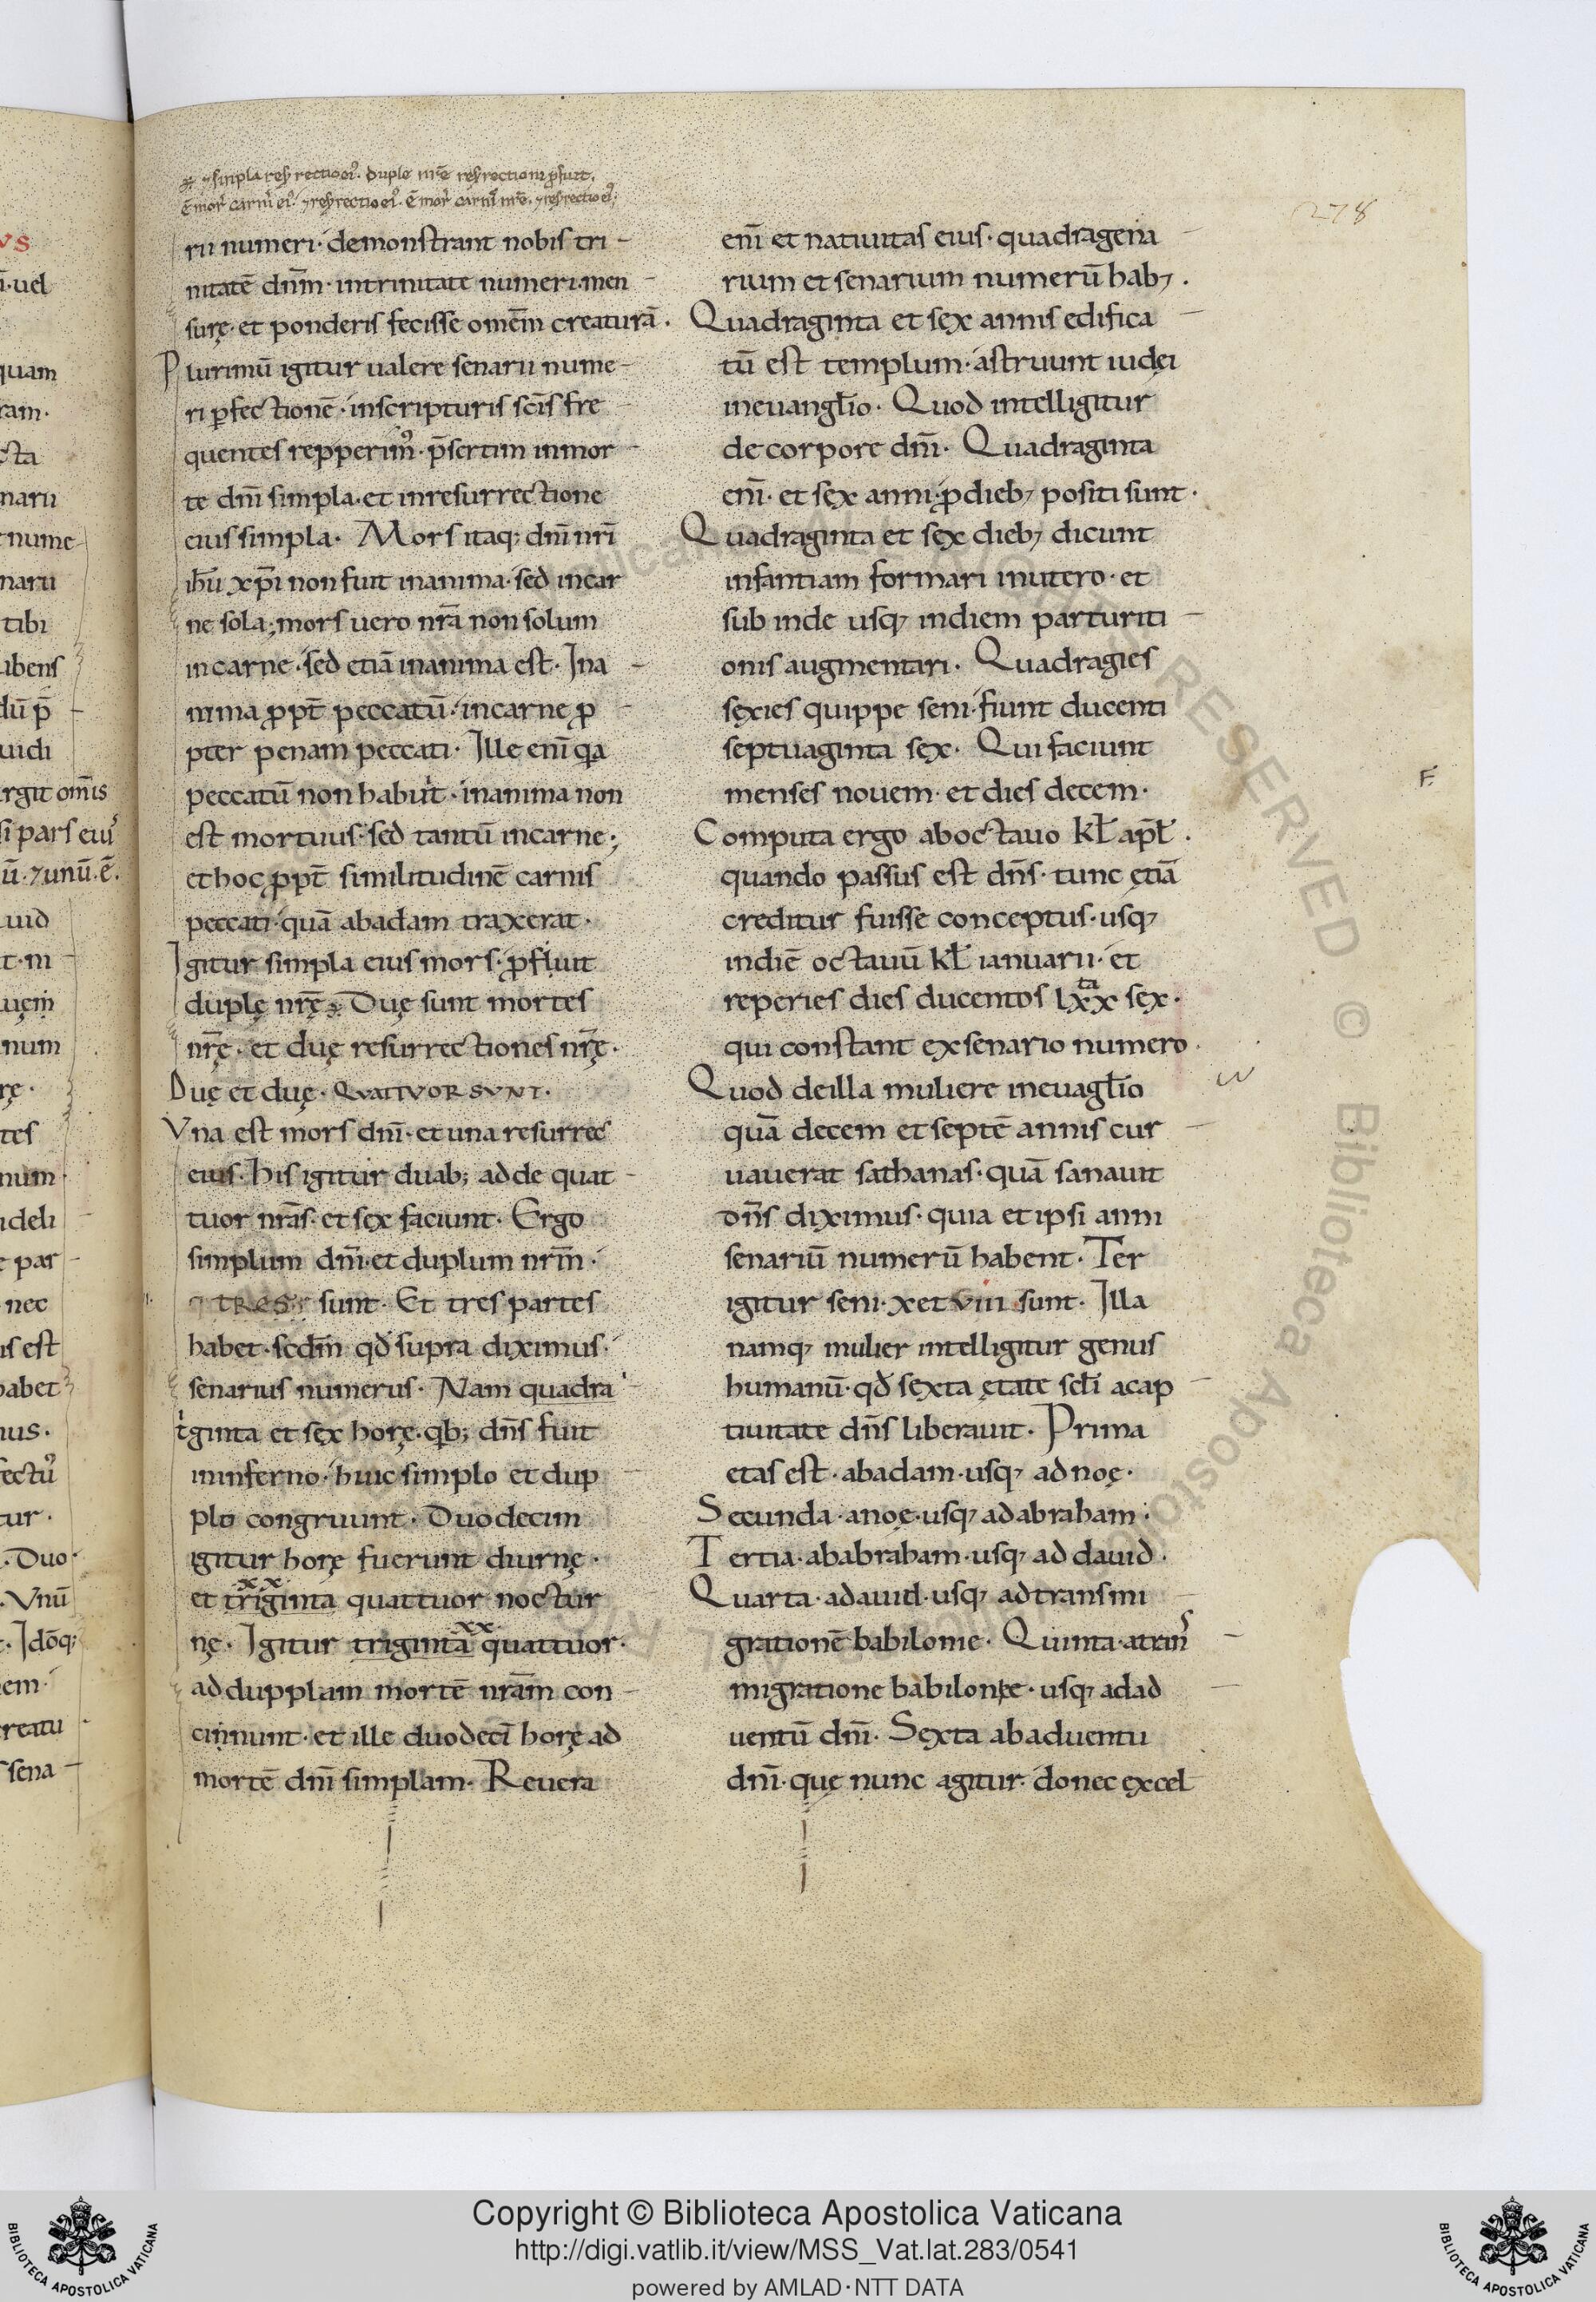 ⁊ simpla resurrectio ei᷒. duple nr̄e resurrectioni ꝓfuit.
278
rii numeri· demonstrant nobis tri-
nitatē dn̄m· intrinitate numeri·men-
surę· et ponderis fecisse omēm creaturā.
Plurimū igitur ualere senarii nume-
ri ꝑfectionē· inscripturis scīs fre
quentes repperim᷒· p̄sertim inmor-
te dnī simpla· et inresurrectione
eius simpla· Mors itaq; dnī nrī
ih̄u xp̄i non fuit inanima· sed incar
ne sola; mors uero nrā non solum
incarne· sed etiā inanima est· Ina-
nima ꝓpt̄ peccatū· incarne ꝓ-
pter penam peccati· Ille enī qa
peccatū non habuit· inanima non
est mortuus· sed tantū incarne;
et hoc ꝓpt̄ similitudinē carnis
peccati· quā abadam traxerat·
Igitur simpla eius mors· ꝓfluit
duplę nrę̄· Duę sunt mortes
nrę̄· et duę resurrectiones nrę̄·
Duę et duę· QVATTVOR SVNT·
Vna est mors dnī· et una resurrec
eius· His igitur duab; adde quat-
tuor nrās· et sex faciunt· Ergo
simplum dnī· et duplum nrm̄·
TRES sunt· Et tres partes
habet· scd̄m qđ supra diximus·
senarius numerus· Nam quadra-
ginta et sęx horę· qb; dn̄s fuit
ininferno· huic simplo et dup-
plo congruunt· Duodecim
igitur horę fuerunt diurnę·
xx
et triginta quattuor noctur
xx
nę· Igitur triginta quattuor·
ad dupplam mortē nrām con-
cinnunt· et ille duodecī horę ad
mortē dnī simplam· Reuera
enī et natiuitas eius· quadragena-
rium et senarium numerū hab⁊.
Quadraginta et sęx annis edifica-
tū est templum· astruunt iudęi
ineuangl̄io· Quod intelligitur
de corpore dnī· Quadraginta
enī· et sęx anni· ꝓ dieb⁊ positi sunt·
Quadraginta et sęx dieb⁊ dicunt
infantiam formari inutero· et
sub inde usq⁊ indiem parturiti-
onis augmentari· Quadragies
sęxies quippe seni· fiunt ducenti
septuaginta sęx· Qui faciunt
menses nouem· et dies decem·
F.
Computa ergo aboctauo kł apł.
quando passus est dn̄s· tunc ętiā
creditur fuisse conceptus· usq⁊
indiē octauū kł ianuarii· et
ta
reperies dies ducentos lxx sęx·
qui constant exsenario numero·
Quod deilla muliere ineuagl̄io
quā decem et septē annis cur-
uauerat sathanas· quā sanauit
dn̄s diximus· quia et ipsi anni
senariū numerū habent· Ter
igitur seni· x et viii sunt· Illa
namq⁊ mulier intelligitur genus
humanū· qđ sęxta ętate scłi acap-
tiuitate dn̄s liberauit· Prima
etas est· abadam· usq⁊ ad noę·
Secunda· anoę· usq⁊ ad abraham·
Tertia· ababraham· usq⁊ ad dauid·
Quarta· adauid· usq⁊ adtransmi
grationē babilonie· Quinta· atran̄s-
migratione babilonię· usq⁊ adad-
uentū dnī· Sęxta abaduentu
dnī· quę nunc agitur· donec ęxcel
.uel
quam
ram·
cta
narii
nume-
narii
tibi
ibens
dū p̄-
uidi
rgit om̄is
si pars eius
ū· ⁊unū·ē·
uid
num
rę·
tes
num·
ideli
par-
nec
is est
habet
us·
fectū
tur·
·Duo·
·Vnū
·Idōq;
em·
reatu
sena-
Copyright © Biblioteca Apostolica Vaticana
http://digi.vatlib.it/view/MSS_Vat.lat.283/0541
powered by AMLAD·NTT DATA
BIBLIOTECA APOSTOLICA VATICANA
BIBLIOTECA APOSTOLICA VATICANA